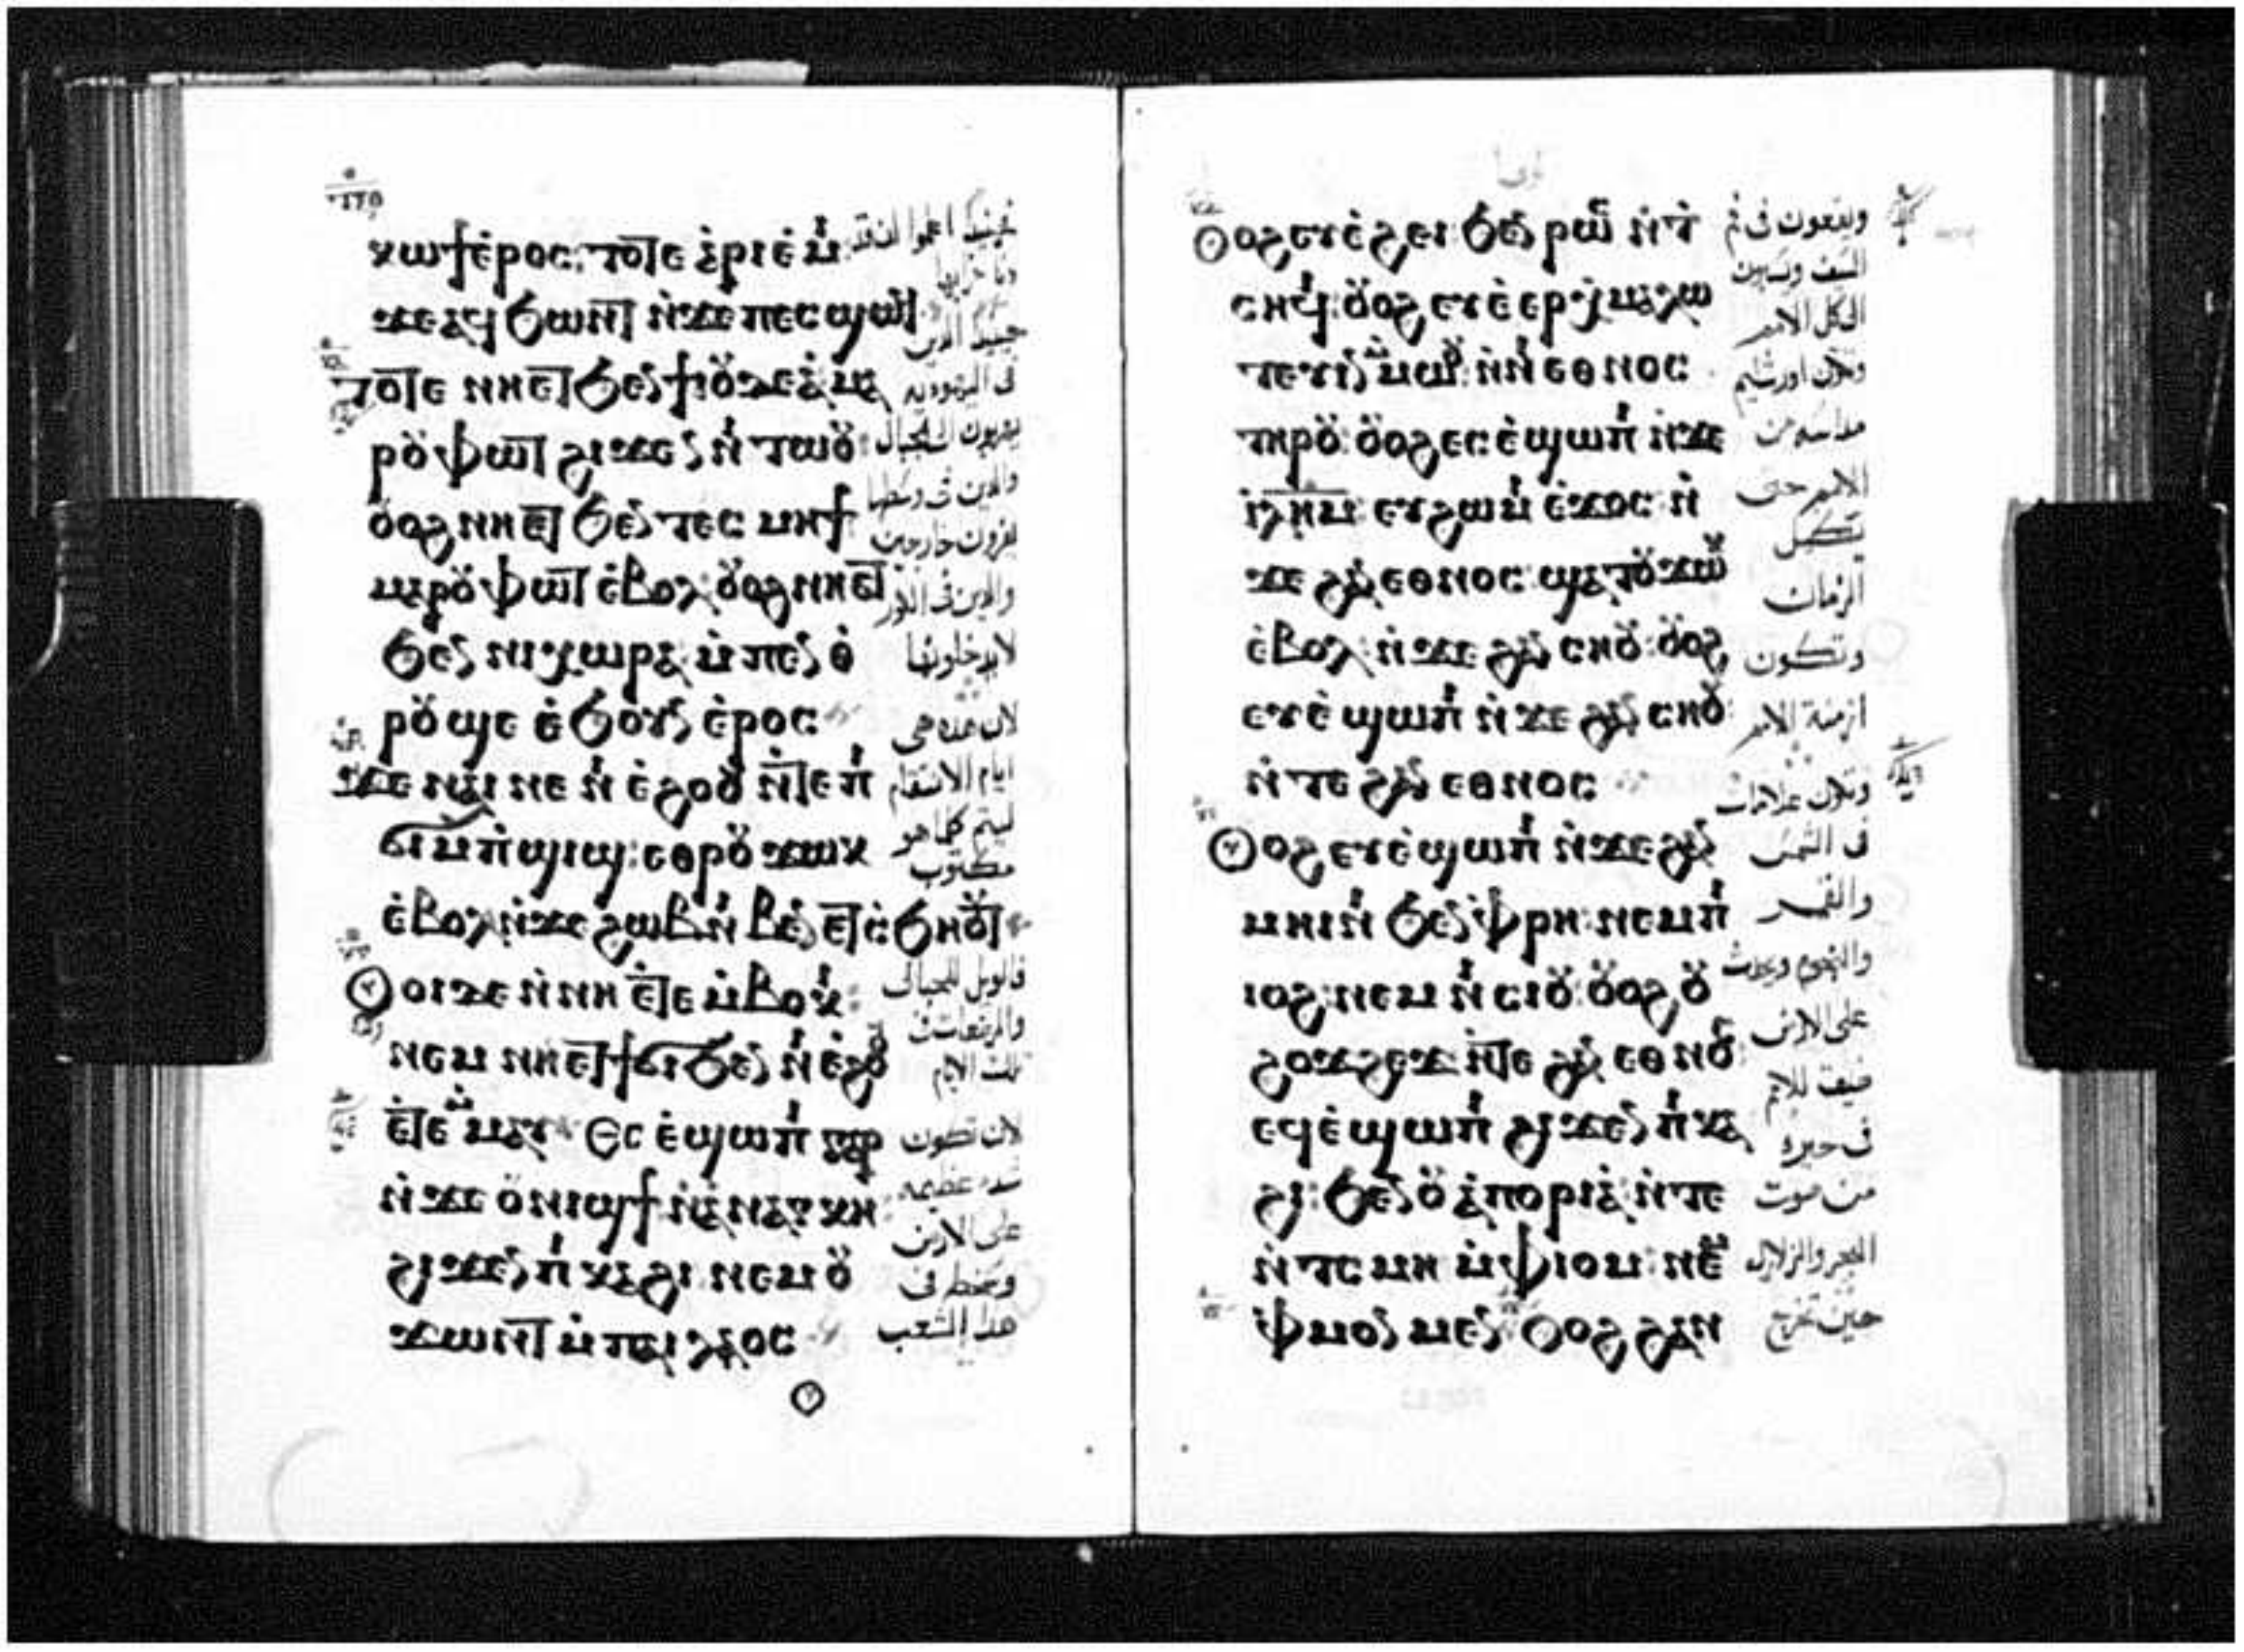 ⲕⲱϯⲉ̀ⲣⲟⲥ: ⲧⲟⲧⲉ ⲁ̀ⲣⲓⲉ̀ⲙ̇
ϫⲉⲁϥϧⲱⲛⲧ ⲛ̀ϫⲉ ⲡⲉⲥϣⲱϥ
ⲧⲟⲧⲉ ⲛⲏⲉⲧϧⲉⲛ ϯⲓⲟ̈ⲇⲉⲁ̀ ⲙⲁ
ⲣⲟ̈ⲫⲱⲧ ϩⲓϫⲉⲛ ⲛ̇ ⲧⲱⲟ̈:
ⲟ̈ⲟϩ ⲛⲏⲉⲧ ϧⲉⲛ ⲧⲉⲥ ⲙⲏϯ
ⲙⲁⲣⲟ̈ⲫⲱⲧ ⲉ̀ⲃⲟⲗ: ⲟ̈ⲟϩ ⲛⲏⲉⲧ
ϧⲉⲛ ⲛⲓⲭⲱⲣⲁ: ⲙ̀ⲡⲉⲛ ⲑ̀
ⲣⲟ̈ϣⲉ ⲉ̀ϧⲟⲩⲛ ⲉ̀ⲣⲟⲥ
ϫⲉ ⲛⲁⲓ ⲛⲉ ⲛ̇ ⲉ̀ϩⲟⲟⲩ ⲛ̀ⲧⲉ ⲡ̇
ϭⲓⲙ̀ⲡ̇ϣⲓϣ: ⲉⲑⲣⲟ̈ϫⲱⲕ
ⲉ̀ⲃⲟⲗ ⲛ̀ϫⲉ ϩⲱⲃ ⲛ̇ⲃⲉⲛ ⲉⲧⲥ̀ϧⲏⲟⲩⲧ
ⲟ̈ⲟⲓ ⲇⲉ ⲛ̀ⲛⲏ ⲉ̀ⲧⲉ ⲙ̀ⲃⲟⲕ̇:
ⲛⲉⲙ ⲛⲏⲉⲧϯϭⲓ ϧⲉⲛ ⲛ̇ⲉ̀ϩⲟⲟⲩ
ⲉ̀ⲧⲉ ⲙ̀ⲙⲁⲩ ⲉⲥⲉ̀ϣⲱⲡ̇ ⲅⲁⲣ
ⲛ̀ϫⲉ ⲟ̈ⲛⲓϣϯ ⲛ̀ⲁ̀ⲛⲁⲅⲕⲏ:
ϩⲓϫⲉⲛ ⲡ̇ⲕⲁϩⲓ: ⲛⲉⲙ ⲟ̈
ϫⲱⲛⲧ ⲙ̀ⲡⲁⲓⲗⲁⲟⲥ
حينيذ اعلموا ان قد
دنا خرابها
حينيذ الذين
فى اليهوديه
يهربون الى الجبال
والذين فى وسطها
يفرون خارجين
والذين فى الكور
لايدخلونها
لان هذه هى
ايام الانتقام
ليتم كلما هو
مكتوب
فالويل للحبالى
والمرضعات فى
تلك الايام
لان تكون
شده عظيمه
على الارض
وسخط فى
هذا الشعب
ⲟ̈ⲟϩ ⲉⲩⲉ̀ϩⲉⲓ ϧⲉⲛ ⲣⲱϥ ⲛ̀ⲧ̀
ⲥⲏϥⲓ: ⲟ̈ⲟϩ ⲉⲩⲉ̀ⲉⲣⲭ̇ⲙⲁⲗⲱ
ⲧⲉⲩⲓⲛ ⲙ̀ⲙⲱⲟⲩ: ⲛ̀ⲛ̇ⲉⲑⲛⲟⲥ
ⲧⲏⲣⲟ̈: ⲟ̈ⲟϩ ⲉⲥⲉ̀ϣⲱⲡ̇ ⲛ̀ϫⲉ
ⲓⲗⲏⲙ: ⲉⲩϩⲱⲙ̇ ⲉ̀ϫⲟⲥ: ⲛ̀
ϫⲉ ϩⲁⲛ ⲉⲑⲛⲟⲥ: ϣⲁⲧⲟ̈ϫⲱⲕ
ⲉ̀ⲃⲟⲗ: ⲛ̀ϫⲉ ϩⲁⲛ ⲥⲏⲟ̈: ⲟ̈ⲟϩ
ⲉⲩⲉ̀ϣⲱⲡ̇ ⲛ̀ϫⲉ ϩⲁⲛ ⲥⲏⲟ̈:
ⲛ̀ⲧⲉ ϩⲁⲛ ⲉⲑⲛⲟⲥ:
ⲟ̈ⲟϩ ⲉⲩⲉ̀ϣⲱⲡ̇ ⲛ̀ϫⲉ ϩⲁⲛ
ⲙⲏⲓⲛ̇ ϧⲉⲛ ⲫ̀ⲣⲏ: ⲛⲉⲙ ⲡ̇
ⲓⲟϩ: ⲛⲉⲙ ⲛ̇ ⲥⲓⲟ̈: ⲟ̈ⲟϩ ⲟ̈
ϩⲟϫϩⲉϫ ⲛ̀ⲧⲉ ϩⲁⲛ ⲉⲑⲛⲟⲥ:
ⲉϥⲉ̀ϣⲱⲡ̇ ϩⲓϫⲉⲛ ⲡ̇ⲕⲁ
ϩⲓ: ϧⲉⲛ ⲟ̈ⲁ̀ⲡⲟⲣⲓⲁ̀: ⲛ̀ⲧⲉ
ⲛ̀ⲧⲥⲙⲏ ⲙ̀ⲫⲓⲟⲙ: ⲛⲉⲙ
ⲫ̀ⲙⲟⲛⲙⲉⲛ ⲟ̈ⲟϩ ϩⲁⲛ
ويقعون فى فم
السيف ويسبون
الى كل الامم
وتكون اورشليم
مداسه من
الامم حتى
تكمل
الزمان
وتكون
ازمنة الامم
وتكون علامات
فى الشمس
والقمر
والنجوم ويحدث
على الارض
ضيقه للامم
فى حيرة
من صوت
البحر والزلازل
حين تخرج